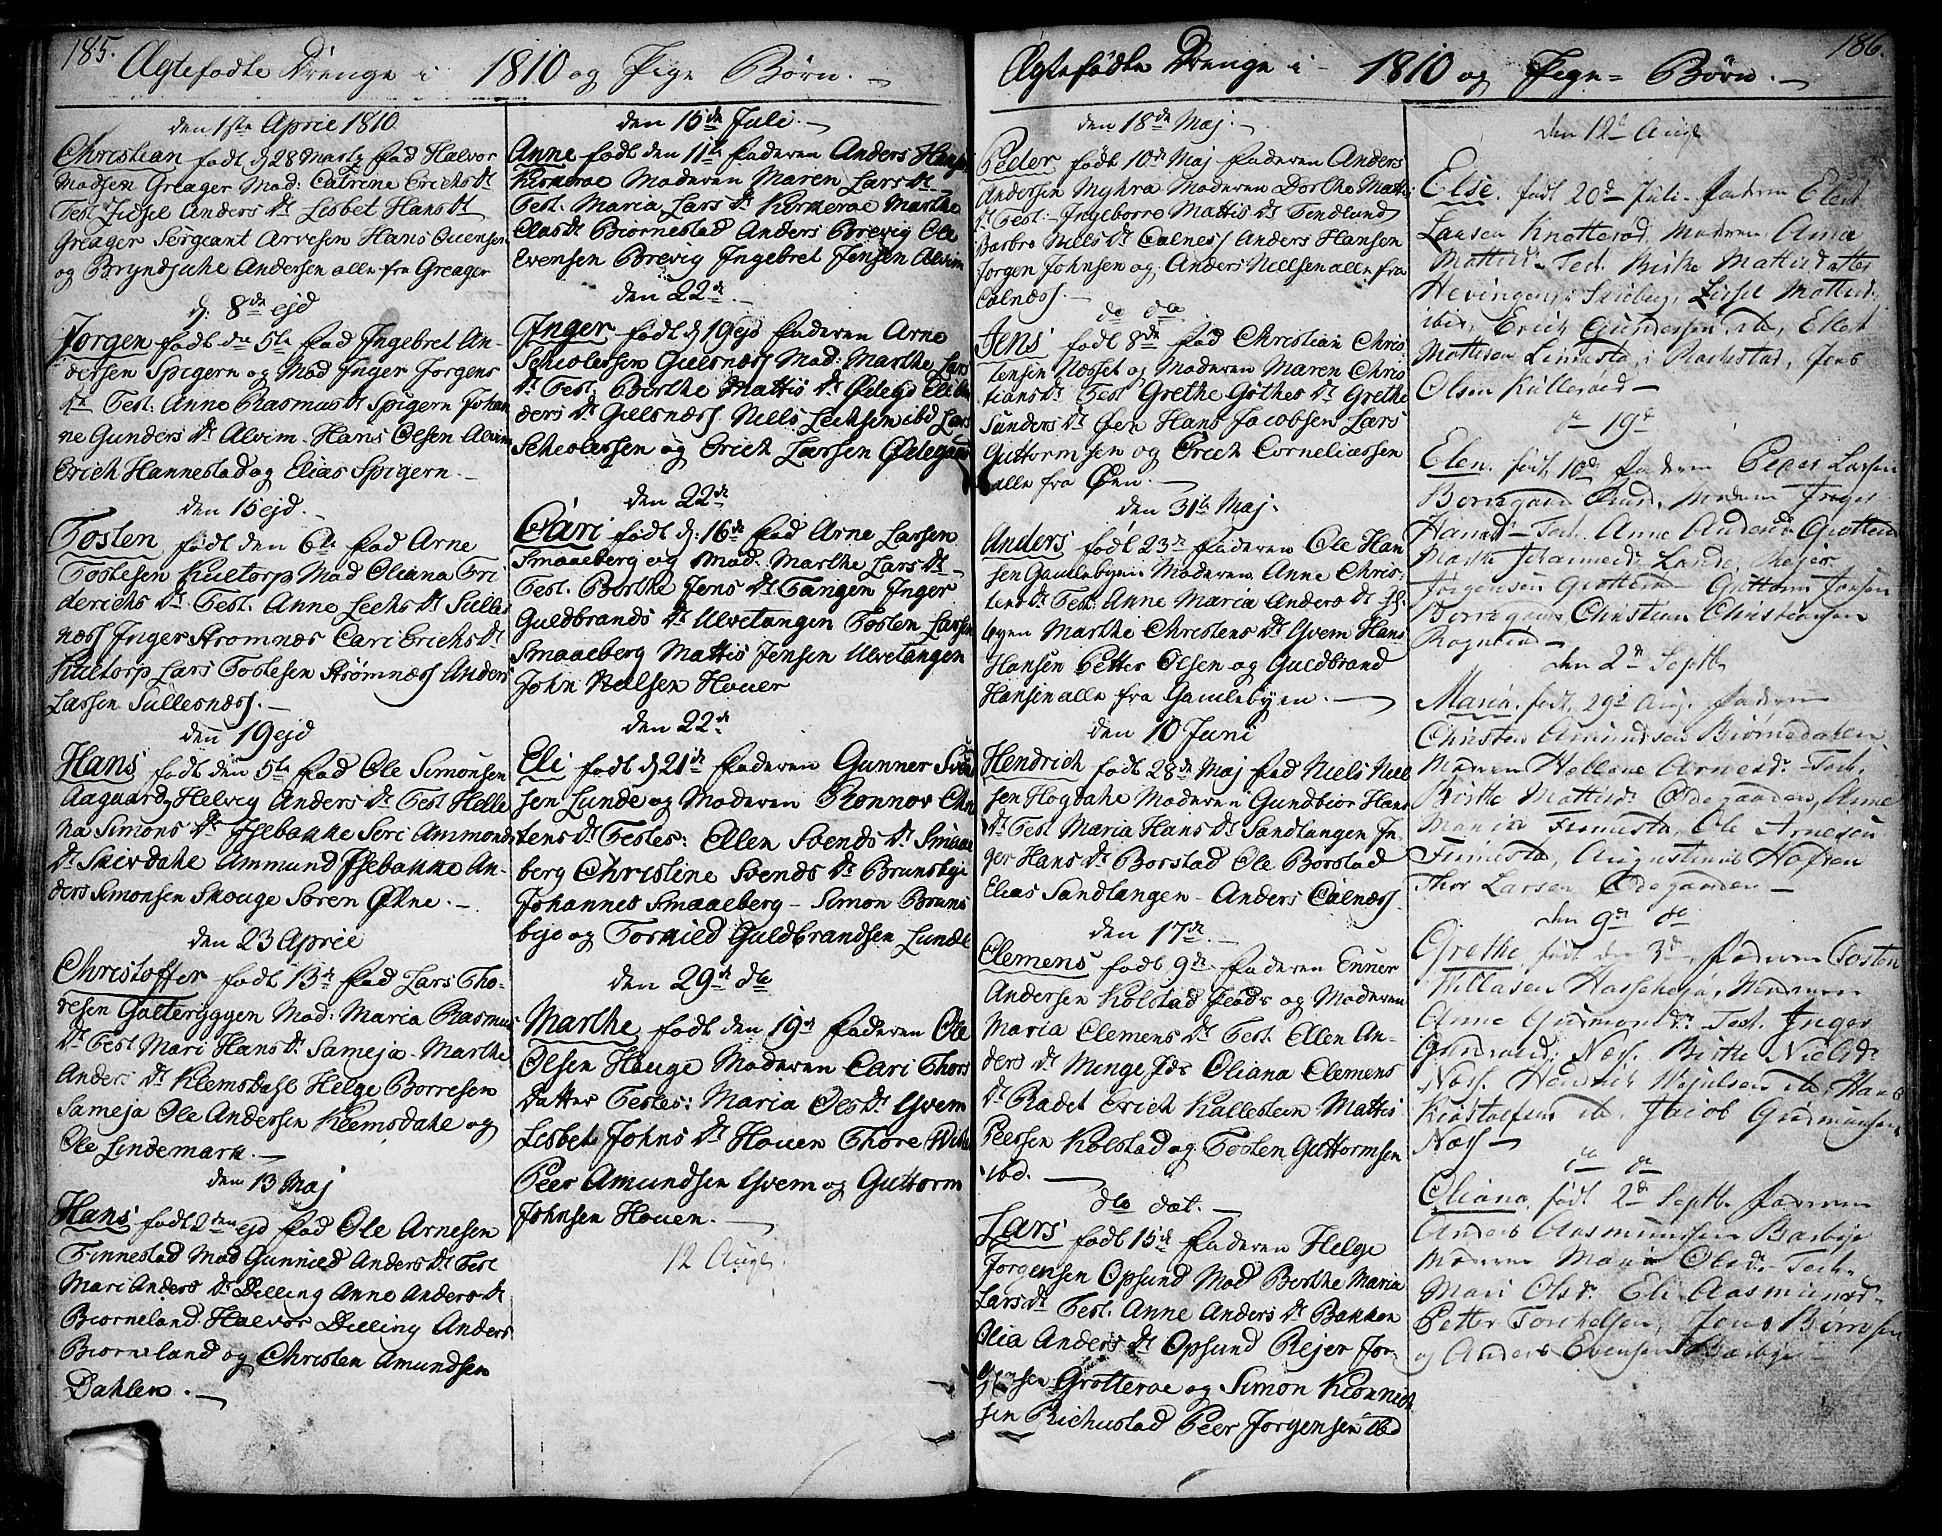 185.
Ægtefødte Drenge i 1810 og Pige Børn.
den 1ste April 1810
Christian født d 28 Martz fad Halvor
Madsen Greager Mod: Catrine Erichs Dr
Test. Zidsel Anders Dr Lisbet Hans Dr
Greager Sergeant Arvesen Hans
og Andersen alle fra Greager
d: 8de ejd
Jørgen født den 5te fad Ingebret An-
dersen Spigern og Mod Inger Jørgens
Dr Test: Anne Rasmus Dr Spigern Johan
ne Gunders Dr Alvim Hans Olsen Alvim
Erich Hannestad og Elias Spigern.
den 15 ejd.
Tosten født den 6te fad Arne
Tostesen Kultorp Mod Oliana Fri
derichs Dr Test. Anne Dr Sulles
næss Inger Strømnæs Cari Erichs Dr
Kultorp Lars Tostesen Strømnæss Anders
Larsen Sullesnæss.
den 19 ejd
Hans født den 5te fad Ole Simonsen
Aagaard Helvig Anders Dr Test Helle
na Simons Dr Isebakke Seri Ammonds
Dr Ammund Isebakke An-
ders Simonsen Skouge Søren
den 23 April
Christoffer født 13de fad Lars Tho-
resen Galteryggen Mod: Maria Rasmus
Dr Test Mari Hans Dr Sameja Marthe
Anders Dr Kleemsdahl Helge Borresen
Sameja Ole Andersen Kleemsdahl og
Ole Lindemark.
den 13 Maj
Hans født 2den ejd fad Ole Arnesen
Finnestad Mod Gunnild Anders Dr Test
Mari Anders Dr Dilling Anne Anders Dr
Biørneland Halvor Dilling Anders
Biørneland og Christen Amundsen
Dahlen.
den 15de Juli.
Anne født den 11te faderen Anders
Kirkerøe Moderen Maren Lars Dr
Test. Maria Lars Dr Kirkerøe Marthe
Olas Dr Biørnestad Anders Brevig Ole
Evensen Brevig Ingebret Jensen Alvim
den 22de
Inger født d 19 ejd faderen Arne
Gulsnæss Mod: Marthe Lars
Dr Test. Berthe Mattis Dr Ødegd Eli An
ders Dr Gulsnæss Niels ibd Lars
og Erich Larsen Ødegaard
den 22de
Cari født d: 16de fad Arne Larsen
Smaaeberg og Mod: Marthe Lars Dr
Test. Berthe Jens Dr Tangen Inger
Guldbrands Dr Ulvetangen Tosten Larsen
Smaaeberg Mattis Jensen Ulvetangen
John Nielsen Houer
den 22de
Eli født d 21de faderen Gunner Svend
sen Lunde og Moderen Ronnov Chris
tens Dr Testes: Ellen Svends Dr Smaae
berg Christine Svends Dr Brunsbye
Johannes Smaaeberg - Simon Bruns
bye og Torkild Guldbrandsen Lunde
den 29de do
Marthe født den 19de faderen Ole
Olsen Houge Moderen Cari Thors
datter Testes: Maria Ols Dr Hvem
Lisbet Johns Dr Houen Thore
Peer Amundsen Hvem og Guttorm
Johnsen Houen.
12 Aug.
186.
Ægtefødte Drenge i 1810 og Pige- Børn.
den 18de Maj
Peder født 10de Maj faderen Anders
Andersen Myhra Moderen Dorthe Matis
Dr Test: Ingeborre Mattis Dr Tendlund
Barbro Niels Dr Calness Anders Hansen
Jørgen Johnsen og Anders Nielsen alle fra
Calnæss.
do do
Jens født 8de fad Christian Chris
tensen Næsset og Moderen Maren Chris
tians Dr Test Grethe Göthes Dr Grethe
Gunders Dr Øen Hans Jacobsen Lars
Guttormsen og Erich Corneliussen
alle fra Øen.
den 31te Maj.
Anders født 23de faderen Ole Han
sen Gamlebyen Moderen Anne Chris-
tens Dr Test: Anne Maria Anders Dr Gl.
byen Marthe Christens Dr Hvem Hans
Hansen Petter Olsen og Guldbrand
Hansen alle fra Gamlebyen.
den 10 Juni
Hendrich født 28de Maj fad Niels Niel
sen Høgdahe Moderen Gundbior Hans
Dr Test Maria Hans Dr Sandtangen In-
ger Hans Dr Borstad Ole Borstad
Elias Sandtangen - Anders Calnæss.
den 17de
Clemens født 9de faderen Enner
Andersen Kolstad og Moderen
Maria Clemens Dr Test. Ellen An-
ders Dr Minge Oliana Clemens
Dr Radet Erich Kallesteen Mattis
Peersen Kolstad og Tosten Guttormsen
ibd.
dto dat.
Lars født 15de faderen Helge
Jørgensen Opsund Mod Berthe Maria
Lars Dr Test. Anne Anders Dr Bakken
Olia Anders Dr Opsund Rejer Jør-
gensen Grotterøe og Simon
sen Richustad Peer Jørgensen ibd
den 12te Aug
Else. født 20de Juli. faderen Elert
Larsen Knatterød, Moderen Anna
Mattisd. Test. Birthe Mattisdatter
Hevingen i Skieberg, Zidsel Mattisd.
ibid, Erich Gundersen ib, Elert
Mattisen i Rachestad, Jens
Olsen Kullerød
de 19de
Elen. født 10de faderen Peder Larsen
Borregaard Moderen Inger
Hansdr Test. Anne Andersdr Grotterød
Marthe Johannesdr Lande, Rejer
Jørgensen Grotterød Guttorm Jensen
Borregaard Christian Christiansen
den 2de Septb.
Maria født 29de Aug. faderen
Christen Amundsen Biørnedalen
Moderen Hellene Arnesdr Test.
Birthe Mattisdr Ødegaarden, Anne
Maria Finnestad, Ole Arnesen
Finnestad, Augustinus
Thor Larsen Ødegaarden
den 9de do
Grethe født den 3de, faderen Tosten
Moderen
Anne Gudmundsdr Test. Inger
Næss. Birthe Nielsdr
Næss. Hendrich ib, Hans
ib. Jacob Gudmundsen
Næss
do do
Oliana født 2de Septb. faderen
Anders Aasmundsen Barbye
Moderen Maria Olsdr Test.
Mari Olsdr Eli Aasmundsdr
Petter Torchelsen, Jens Borresen
og Anders Evensen Barbye